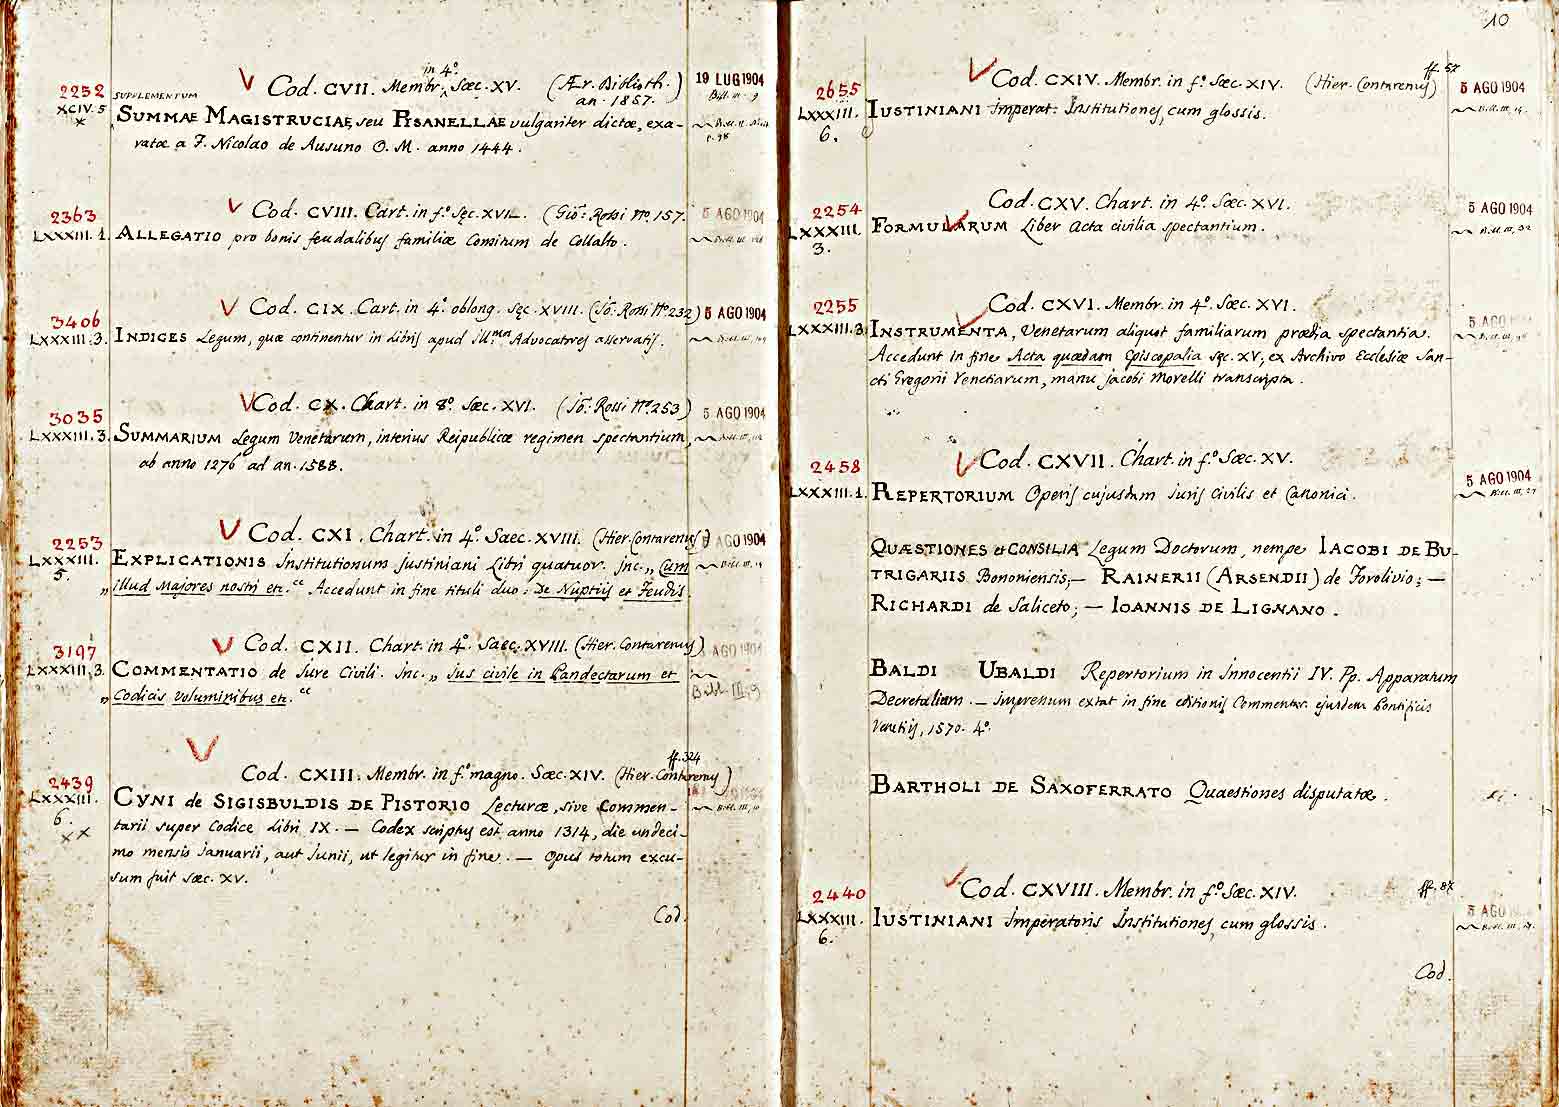 in 4º.
2252 V Cod. CVII. Membr. Sæc. XV. (Ær. Biblioth.) 19 LUG 1904
XCIV. 5 SUPPLEMENTUM an. 1857.
x SUMMAE MAGISTRUCIAE, seu PISANELLAE vulgariter dictæ, exa-
ratæ a F. Nicolao de Ausuno O. M. anno 1444.
2363 V Cod. CVIII. Cart. in fº. Sęc. XVII. (Gio: Rossi Nº. 157. 5 AGO 1904
LXXXIII. 1. ALLEGATIO pro bonis feudalibus familiæ Comitum de Collalto.
3406 V Cod. CIX. Cart. in 4º. oblong. Sęc. XVIII. (Jo: Rossi Nº. 232) 5 AGO 1904
LXXXIII. 3. INDICES Legum, quæ continentur in Libris apud Advocatores asservatis.
3035 V Cod. CX. Chart. in 8º. Sæc. XVI. (Jo: Rossi Nº. 253) 5 AGO 1904
LXXXIII. 3. SUMMARIUM Legum Venetarum, interius Reipublicæ regimen spectantium,
ab anno 1276 ad an. 1588.
2253 V Cod. CXI. Chart. in 4º. Saec. XVIII. (Hier. Contarenus) 5 AGO 1904
LXXXIII. EXPLICATIONIS Institutionum Justiniani Libri quatuor. Inc. „ Cum
5. „ illud Majores nostri etc. “ Accedunt in fine tituli duo: De Nuptiis et Feudis.
3197 V Cod. CXII. Chart. in 4º. Saec. XVIII. (Hier. Contarenus) AGO 1904
LXXXIII. 3. COMMENTATIO de Jure Civili. Inc. „ Jus civile in Pandectarum et
„ Codicis voluminibus etc. “ Bibl. III. 9
V
ff. 324
2439 Cod. CXIII. Membr. in fº. magno. Sæc. XIV. (Hier. Contarenus)
LXXXIII. CYNI de SIGISBULDIS DE PISTORIO Lecturæ, sive Commen-
6. tarii super Codice Libri IX. — Codex scriptus est anno 1314, die undeci-
x x mo mensis Januarii, aut Junii, ut legitur in fine. — Opus totum excu-
sum fuit sæc. XV.
Cod.
10
ff. 57
2655 V Cod. CXIV. Membr. in fº. Sæc. XIV. (Hier. Contarenus) 5 AGO 1904
LXXXIII. IUSTINIANI Imperat. Institutiones, cum glossis.
6.
2254 Cod. CXV. Chart. in 4º. Sæc. XVI. 5 AGO 1904
LXXXIII. V FORMULARUM Liber Acta civilia spectantium.
3.
2255 Cod. CXVI. Membr. in 4º. Sæc. XVI. 5 AGO
LXXXIII. 3. V INSTRUMENTA, Venetarum aliquot familiarum prædia spectantia.
Accedunt in fine Acta quædam Episcopalia sęc. XV, ex Archivo Ecclesiæ San-
cti Gregorii Venetiarum, manu Jacobi Morelli transcripta.
2458 V Cod. CXVII. Chart. in fº. Sæc. XV. 5 AGO 1904
LXXXIII. 1. REPERTORIUM Operis cujusdam Juris Civilis et Canonici.
QUÆSTIONES et CONSILIA Legum Doctorum, nempe IACOBI DE BU-
TRIGARIIS Bononiensis; — RAINERII (ARSENDII) de Forolivio; —
RICHARDI de Saliceto; — IOANNIS DE LIGNANO.
BALDI UBALDI Repertorium in Innocentii IV. Pp. Apparatum
Decretalium. — impressum extat in fine editionis Commentar. ejusdem Pontificis
Venetiis, 1570. 4º.
BARTHOLI DE SAXOFERRATO Quaestiones disputatæ.
2440 V Cod. CXVIII. Membr. in fº. Sæc. XIV. ff. 87
LXXXIII. IUSTINIANI Imperatoris Institutiones, cum glossis. 5 AGO
6.
Cod.